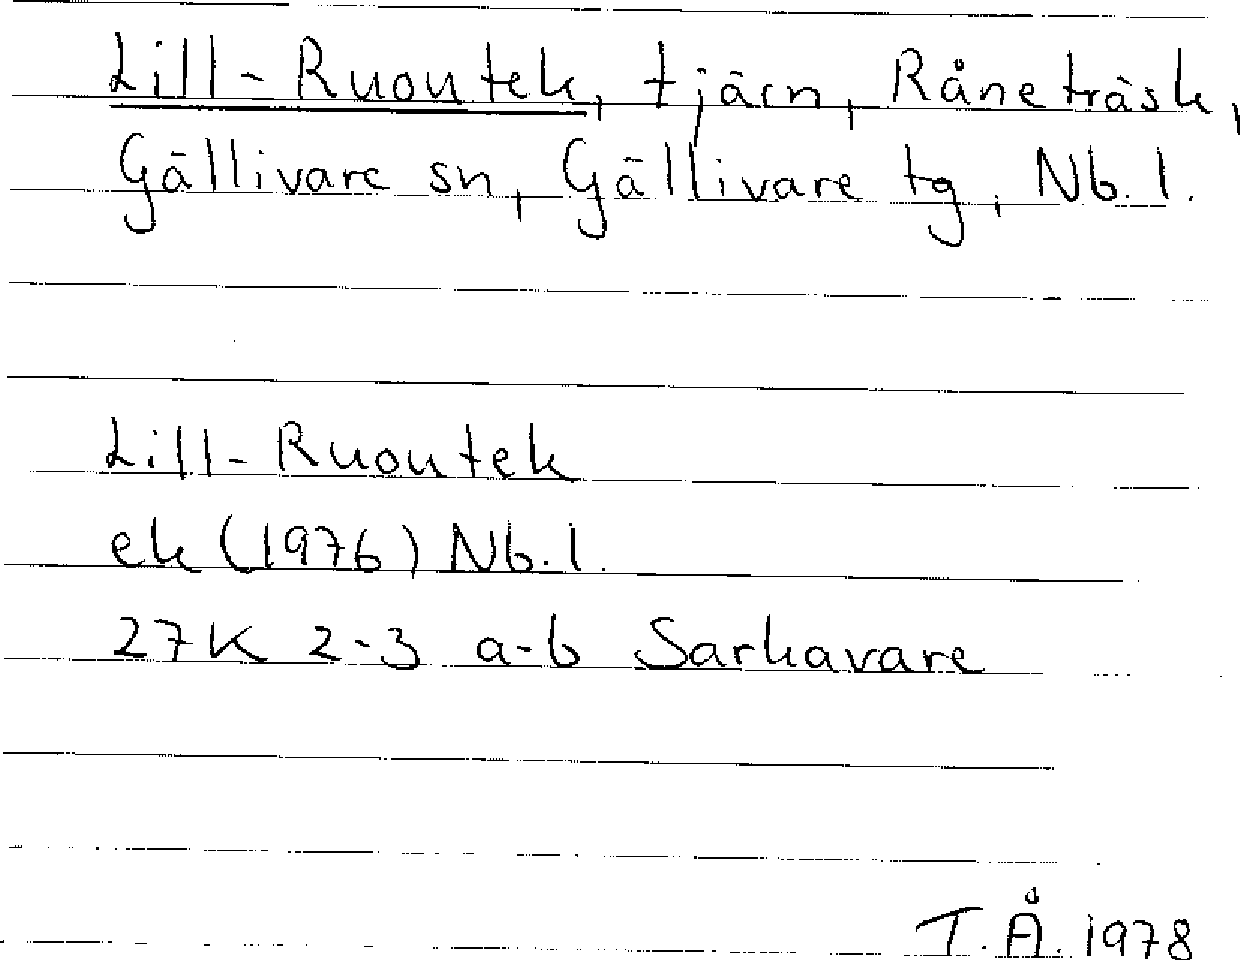 Lill-Ruoutek, tjärn, Råneträsk,
Gällivare sn, Gällivare tg, Nb. l.
Lill-Ruoutek
ek (1976) Nb. l.
27K 2-3 a-b Sarkavare
T.Å. 1978